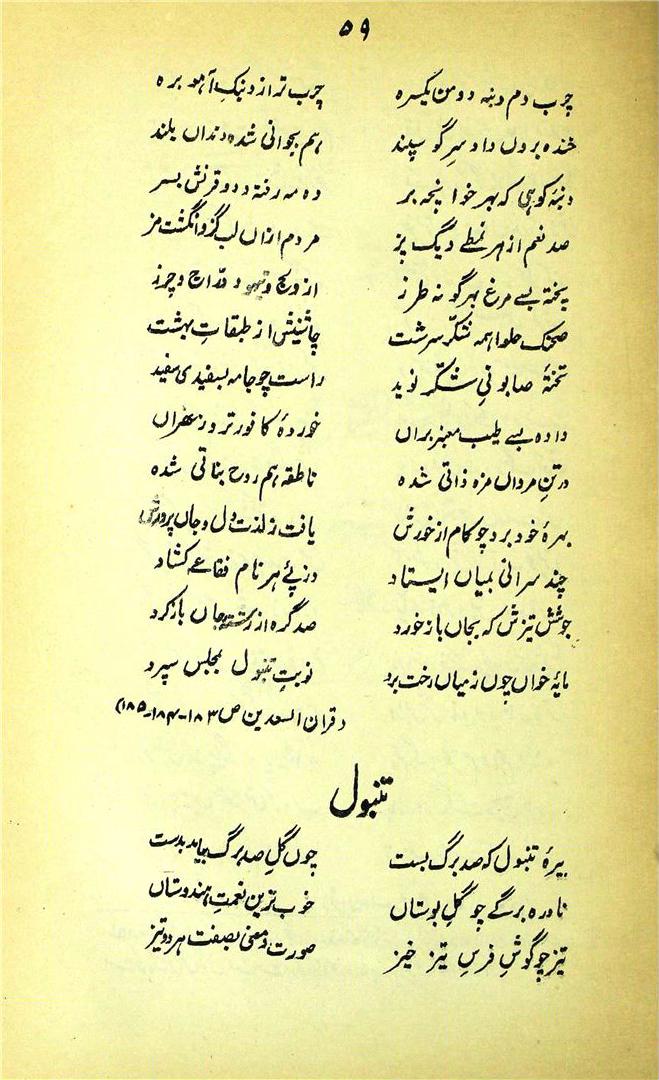 ۵۹
چرب دم دنبہ دو من یکسرہ چرب تر از دنبکِ آہو برہ
خندہ بروں داد سرِ گوسپند ہم بجوانی شدہ دنداں بلند
دنبۂ کوہی کہ بہر خوا پنجہ بر دہ مہ رفتہ و دو قرنش بسر
صد نعم از ہر نمطے دیگ پز مردم ازاں لب گز و انگشت مز
پختہ بسے مرغ بہر گونہ طرز از ولج و تیہو و دراج و چرز
صحنک حلوا ہمہ شکّر سرشت چاشنیش از طبقاتِ بہشت
تختۂ صابونیِ شکّر نوید راست چو جامہ بسفیدی مفید
دادہ بسے طیب معنبر براں خوردۂ کافورِ تر و زعفراں
در تنِ مرداں مزہ ذاتی شدہ ناطقہ ہم روح بناتی شدہ
بہرۂ خود برد چو کام از خورش یافت ز لذت دل و جاں پرورش
چند سرانی بمیاں ایستاد وز پئے ہر نام فقاعے کشاد
جوشش تیزش کہ بجاں باز خورد صد گرہ از رشتۂ جاں باز کرد
مایۂ خواں چوں ز میاں رخت برد نوبتِ تنبول بمجلس سپرد
(قران السعدین ص ۱۸۳-۱۸۴-۱۸۵)
تنبول
بیرۂ تنبول کہ صد برگ بست چوں گلِ صد برگ بیامد بدست
نادرہ برگے چو گلِ بوستاں خوب ترین نعمتِ ہندوستاں
تیز چو گوشِ فرسِ تیز خیز صورت و معنی بصفت ہر دو تیز